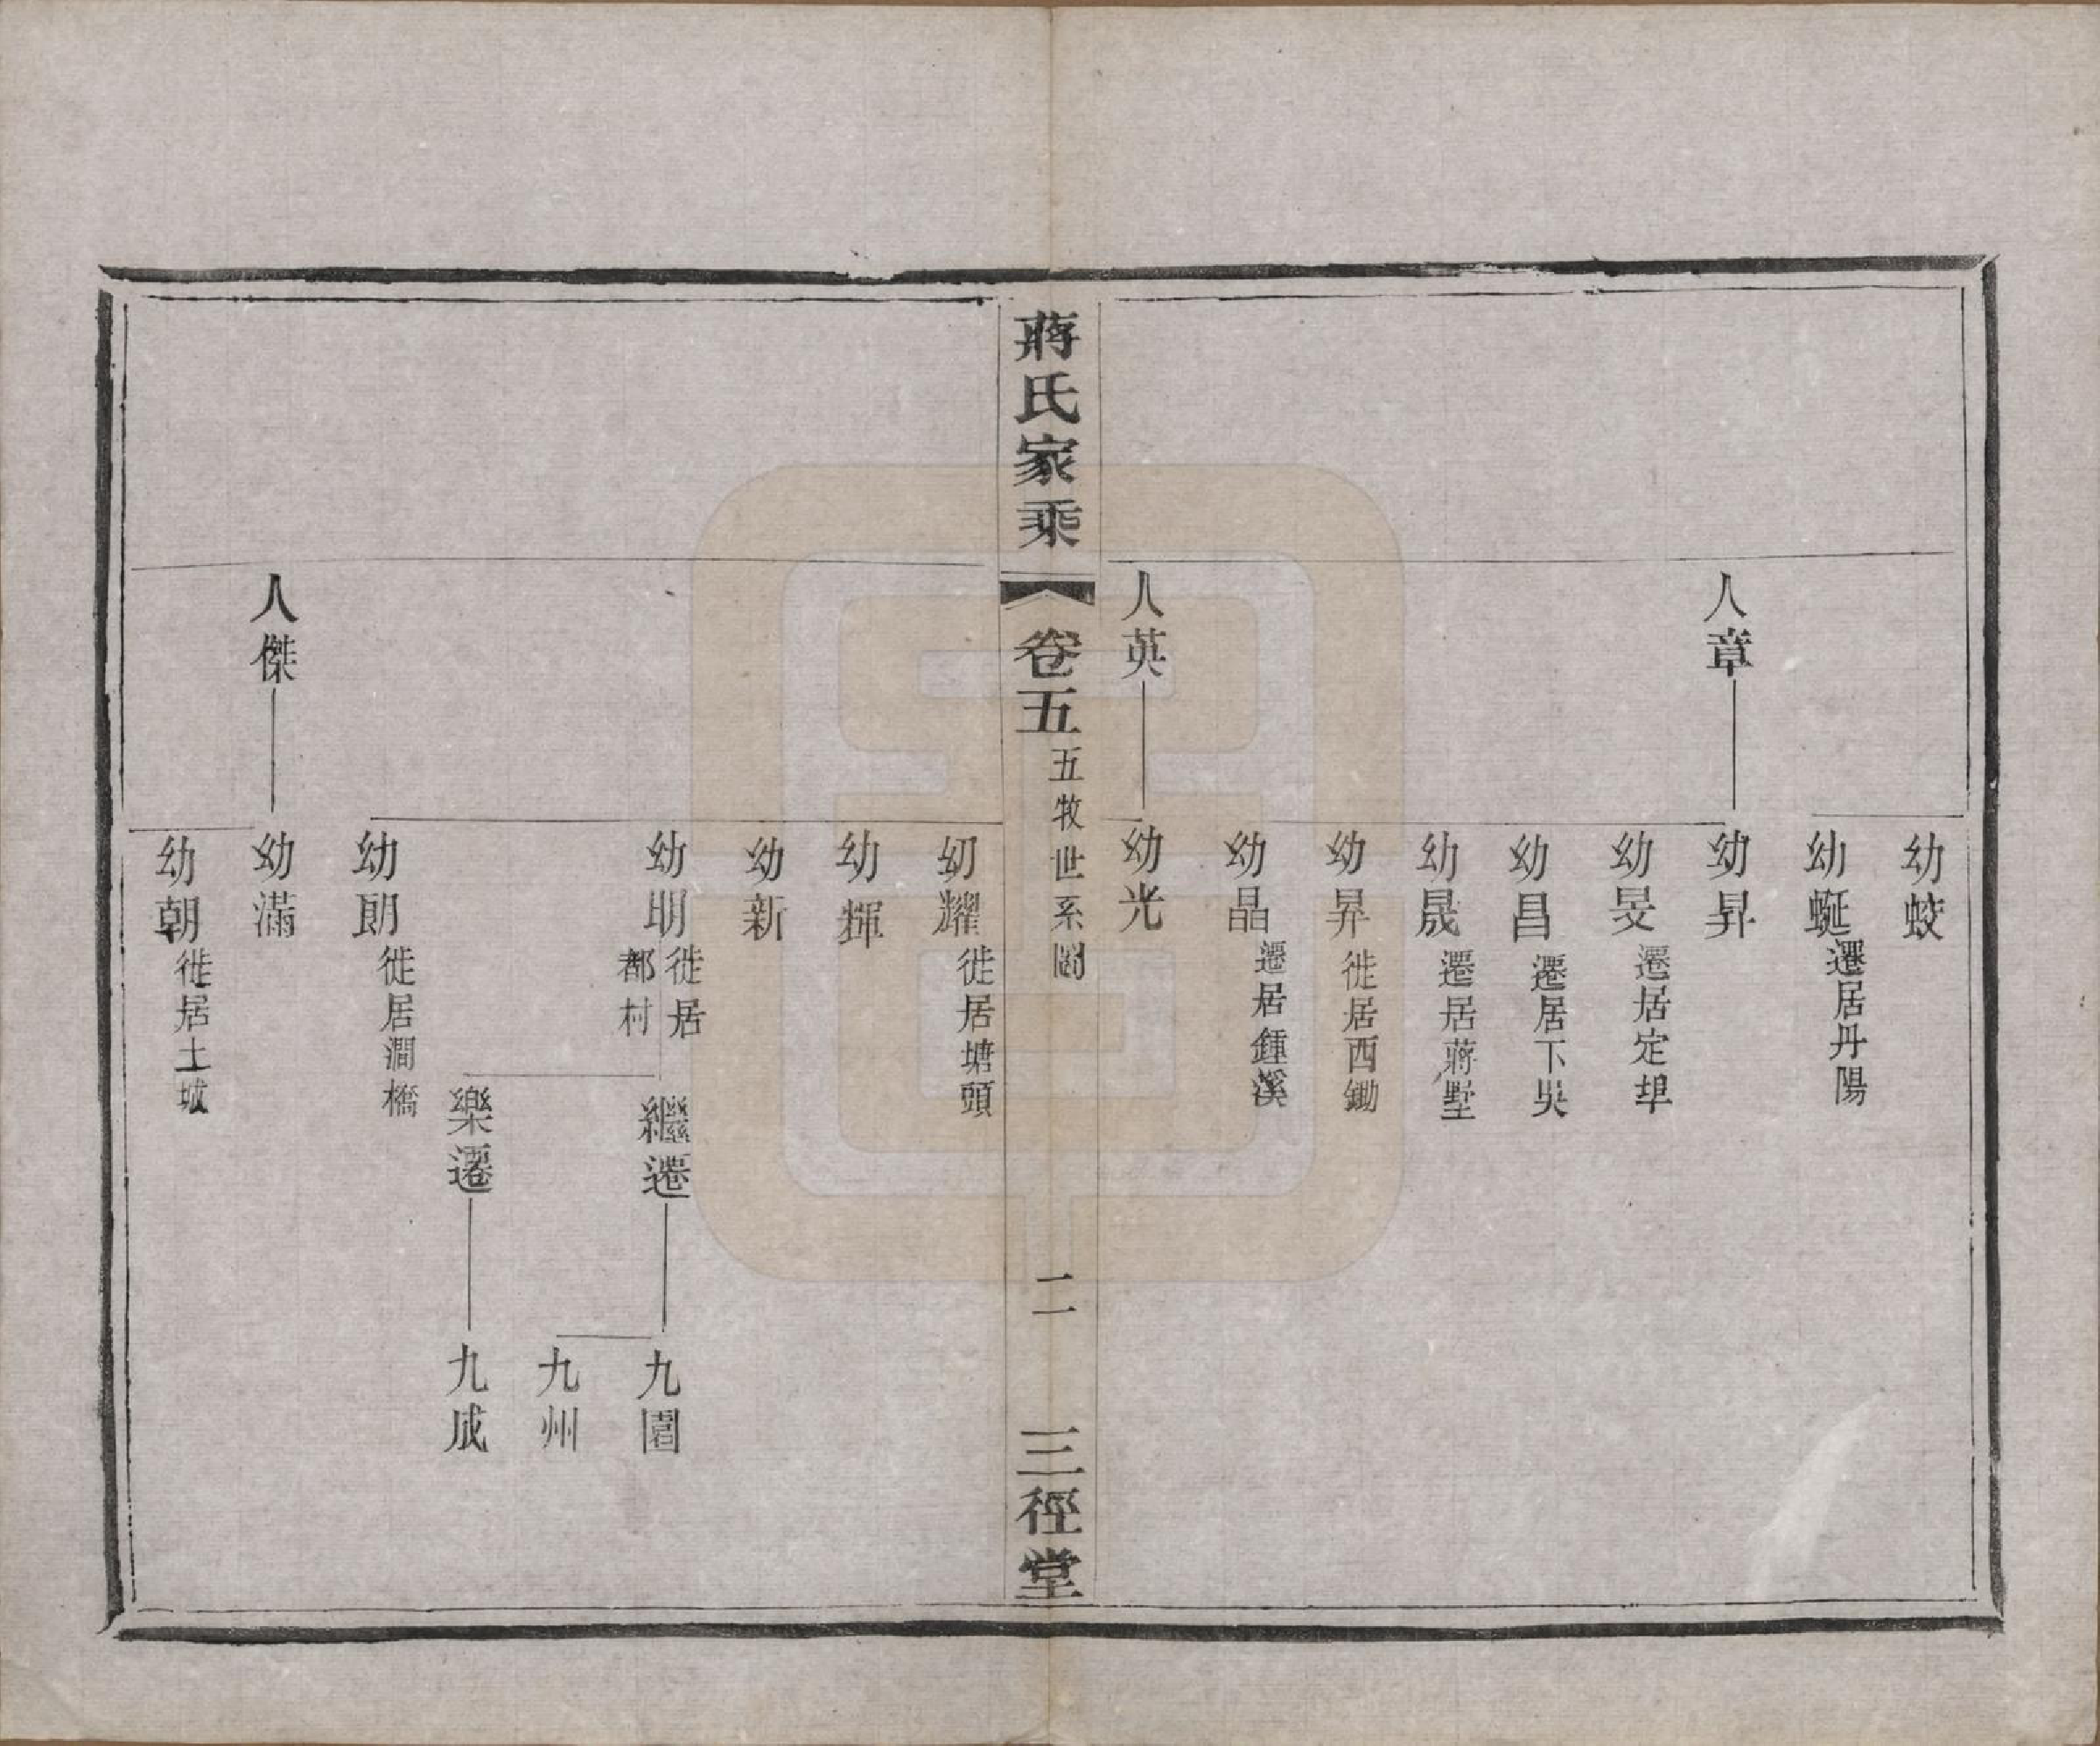 幼蛟
幼蜒 遷居丹陽
人章
幼昇
幼旻 遷居定埠
幼昌 遷居下吳
幼晟 遷居蔣墅
幼昪 徙居西鋤
幼晶 遷居鍾溪
人英
幼光
蔣氏家乘 卷五 五牧世系圖 二 三徑堂
幼耀 徙居塘頭
幼輝
幼新
幼明 徙居都村
繼遷
九園
九州
樂遷
九成
幼朗 徙居澗橋
人傑
幼滿
幼朝 徙居土城